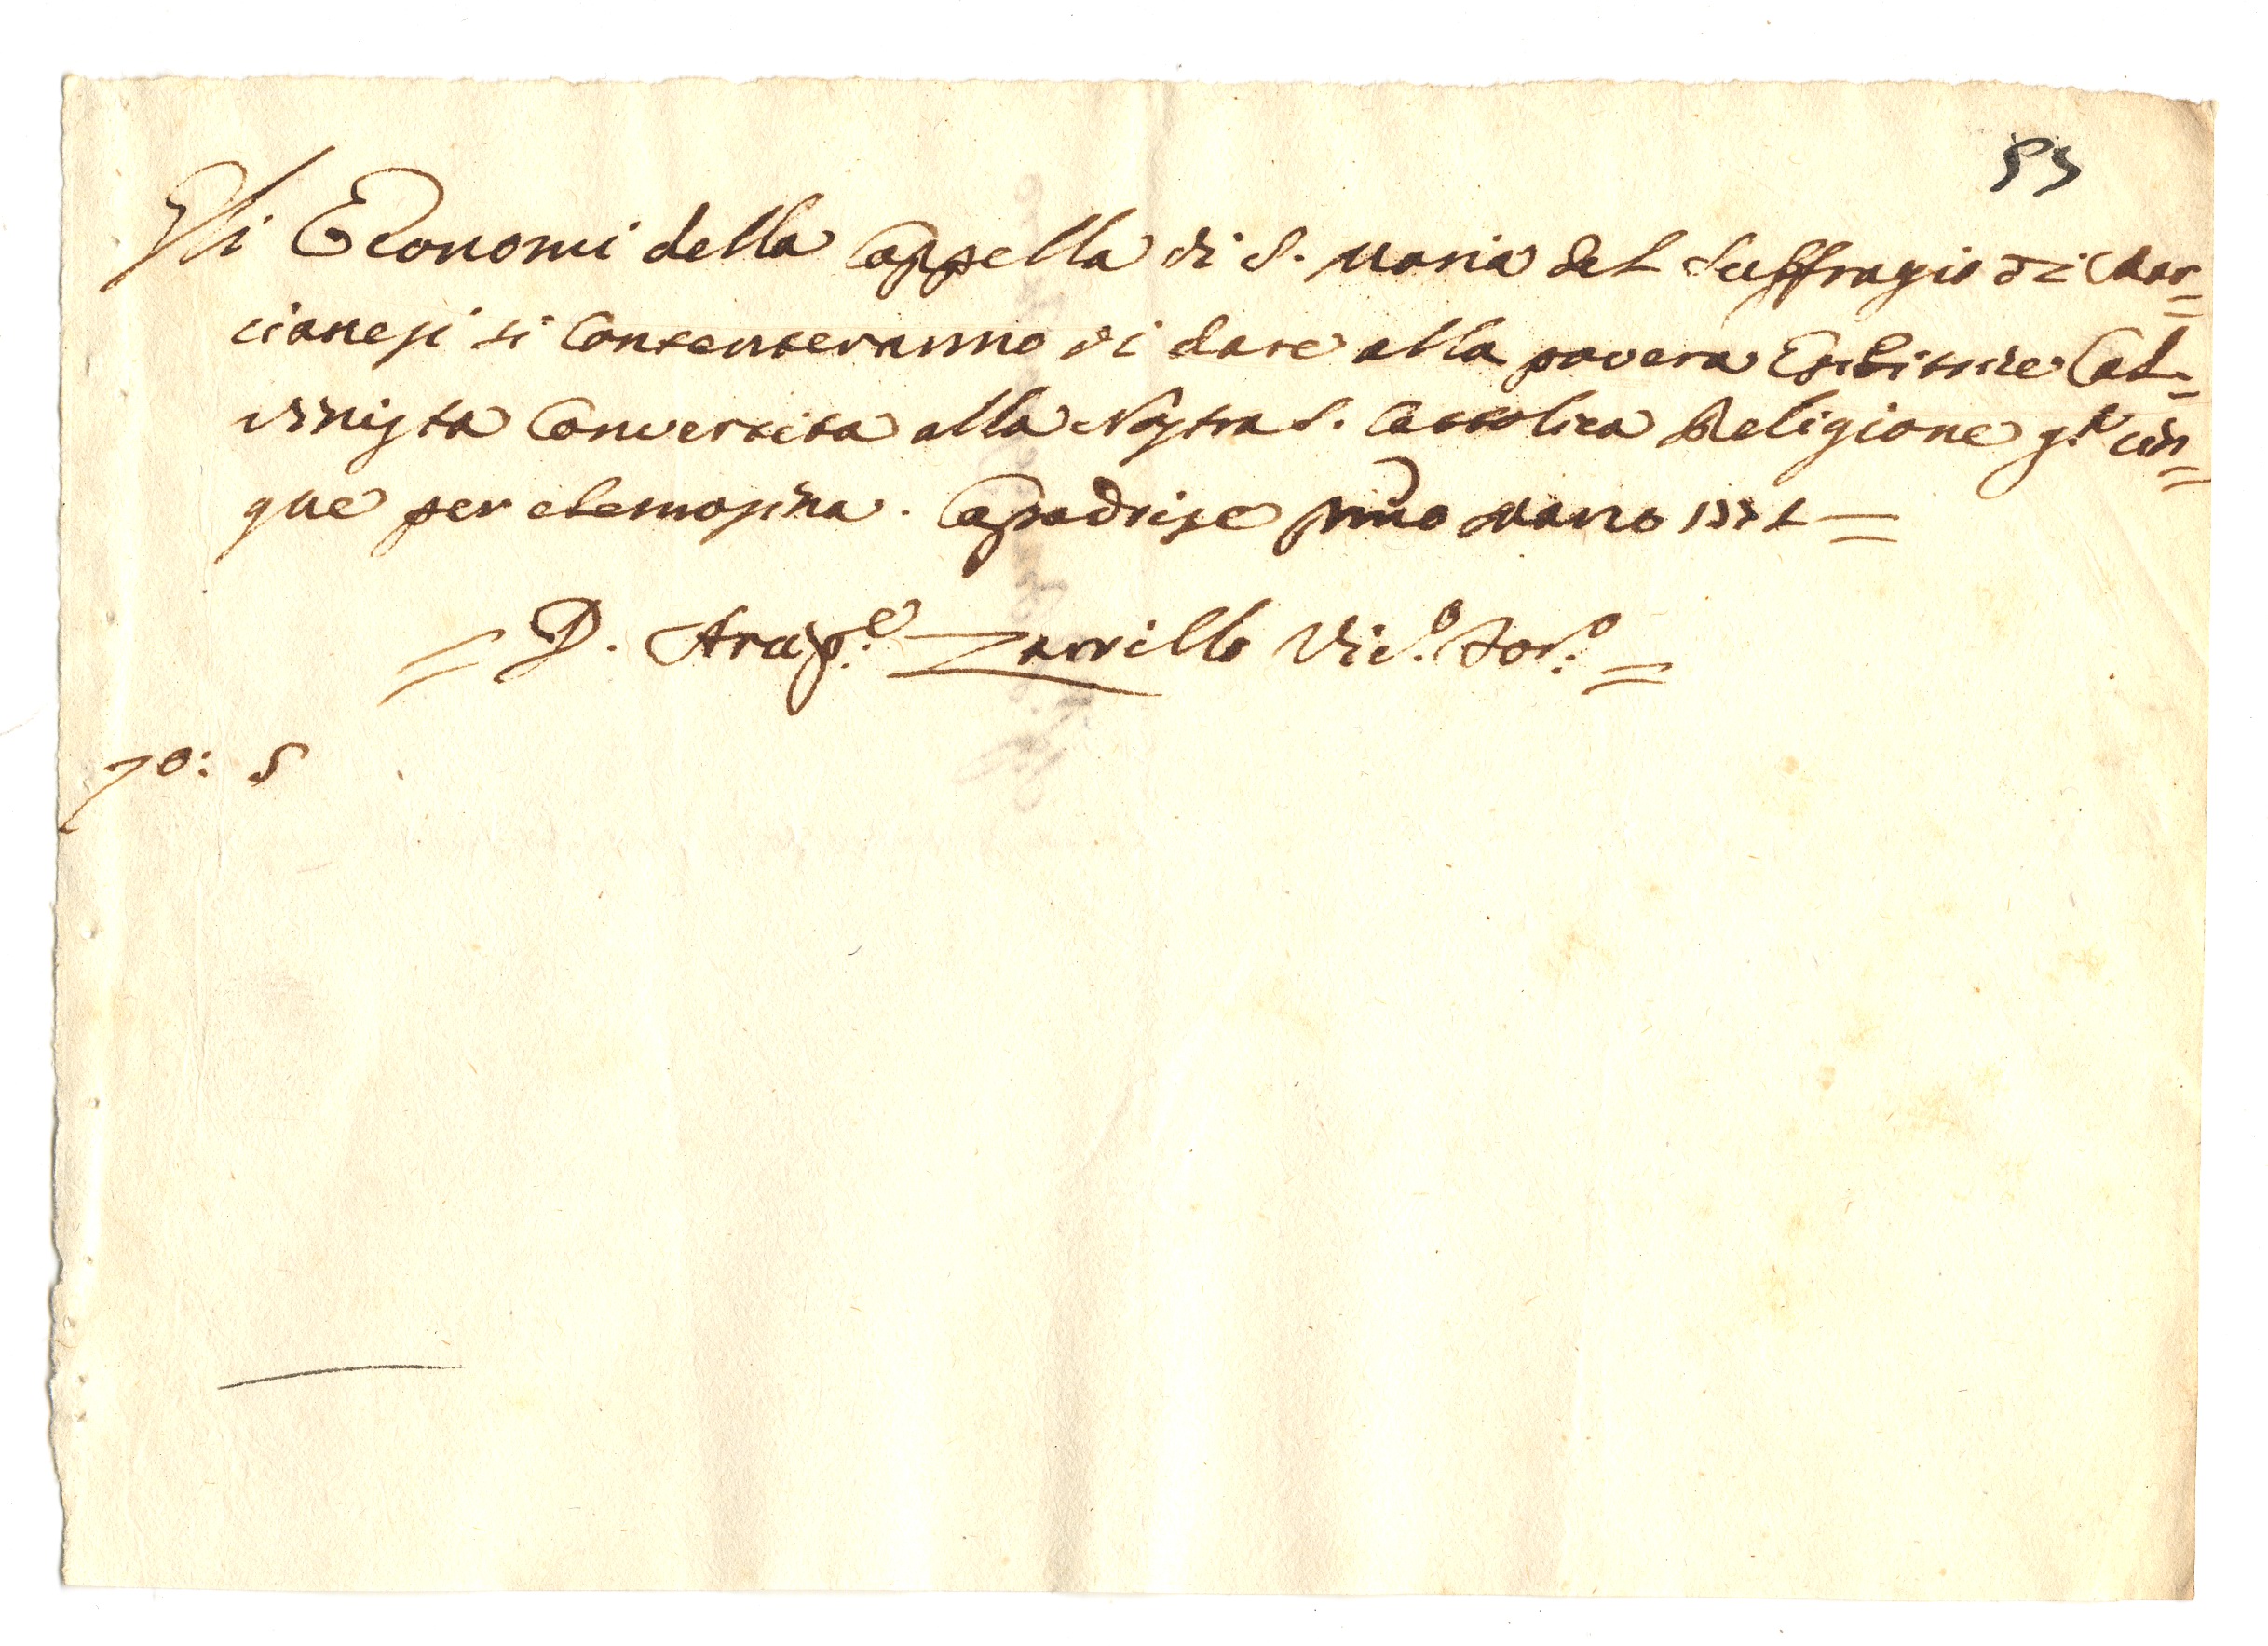 53
Gli Economi della Cappella di S. Maria del Suffragio di Mar=
cianesi si Contenteranno di dare alla povera Esibitrice Cal=
vinista Convertita alla Nostra S. Cattolica Religione g.a cin=
que per elemosina. Capodrise Primo Marzo
= D. Zarrillo Vic.o For.o =
70: 5